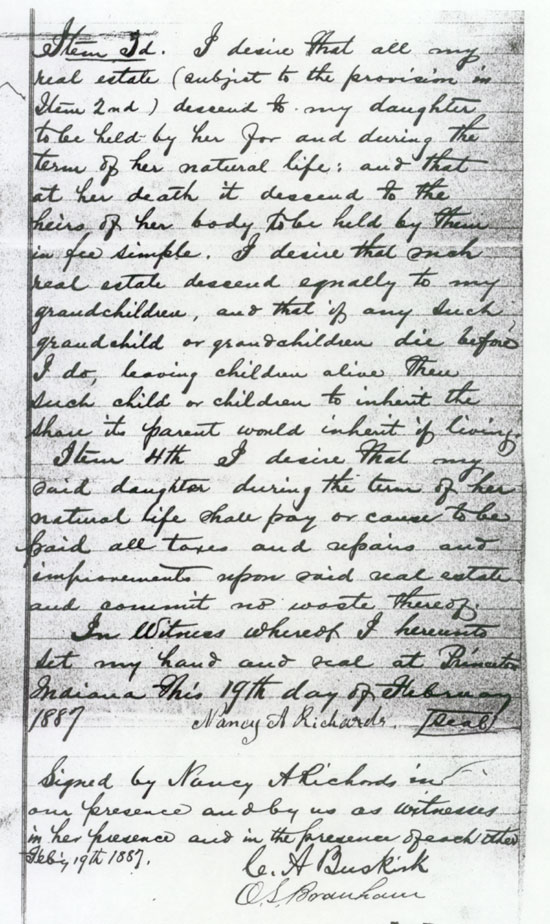 Item 3d. I desire that all my
real estate (subject to the provision in
Item 2nd) descend to my daughter
to be held by her for and during the
term of her natural life; and that
at her death it descend to the
heirs of her body to be held by them
in fee simple. I desire that such
real estate descend equally to my
grandchildren, and that if any such
grandchild or grandchildren die before
I do, leaving children alive then
such child or children to inherit the
share its parent would inherit if living.
Item 4th I desire that my
said daughter during the term of her
natural life shall pay or cause to be
paid all taxes and repairs and
improvements upon said real estate
and commit no waste thereof.
In Witness whereof I hereunto
set my hand and seal at Princeton
Indiana this 19th day of February
1887 Nancy A Richards. [Seal]
Signed by Nancy A Richards in
our presence and by us as witnesses
in her presence and in the presence of each other
Feb'y 19th 1887.
C. A Buskirk
O. S. Branham